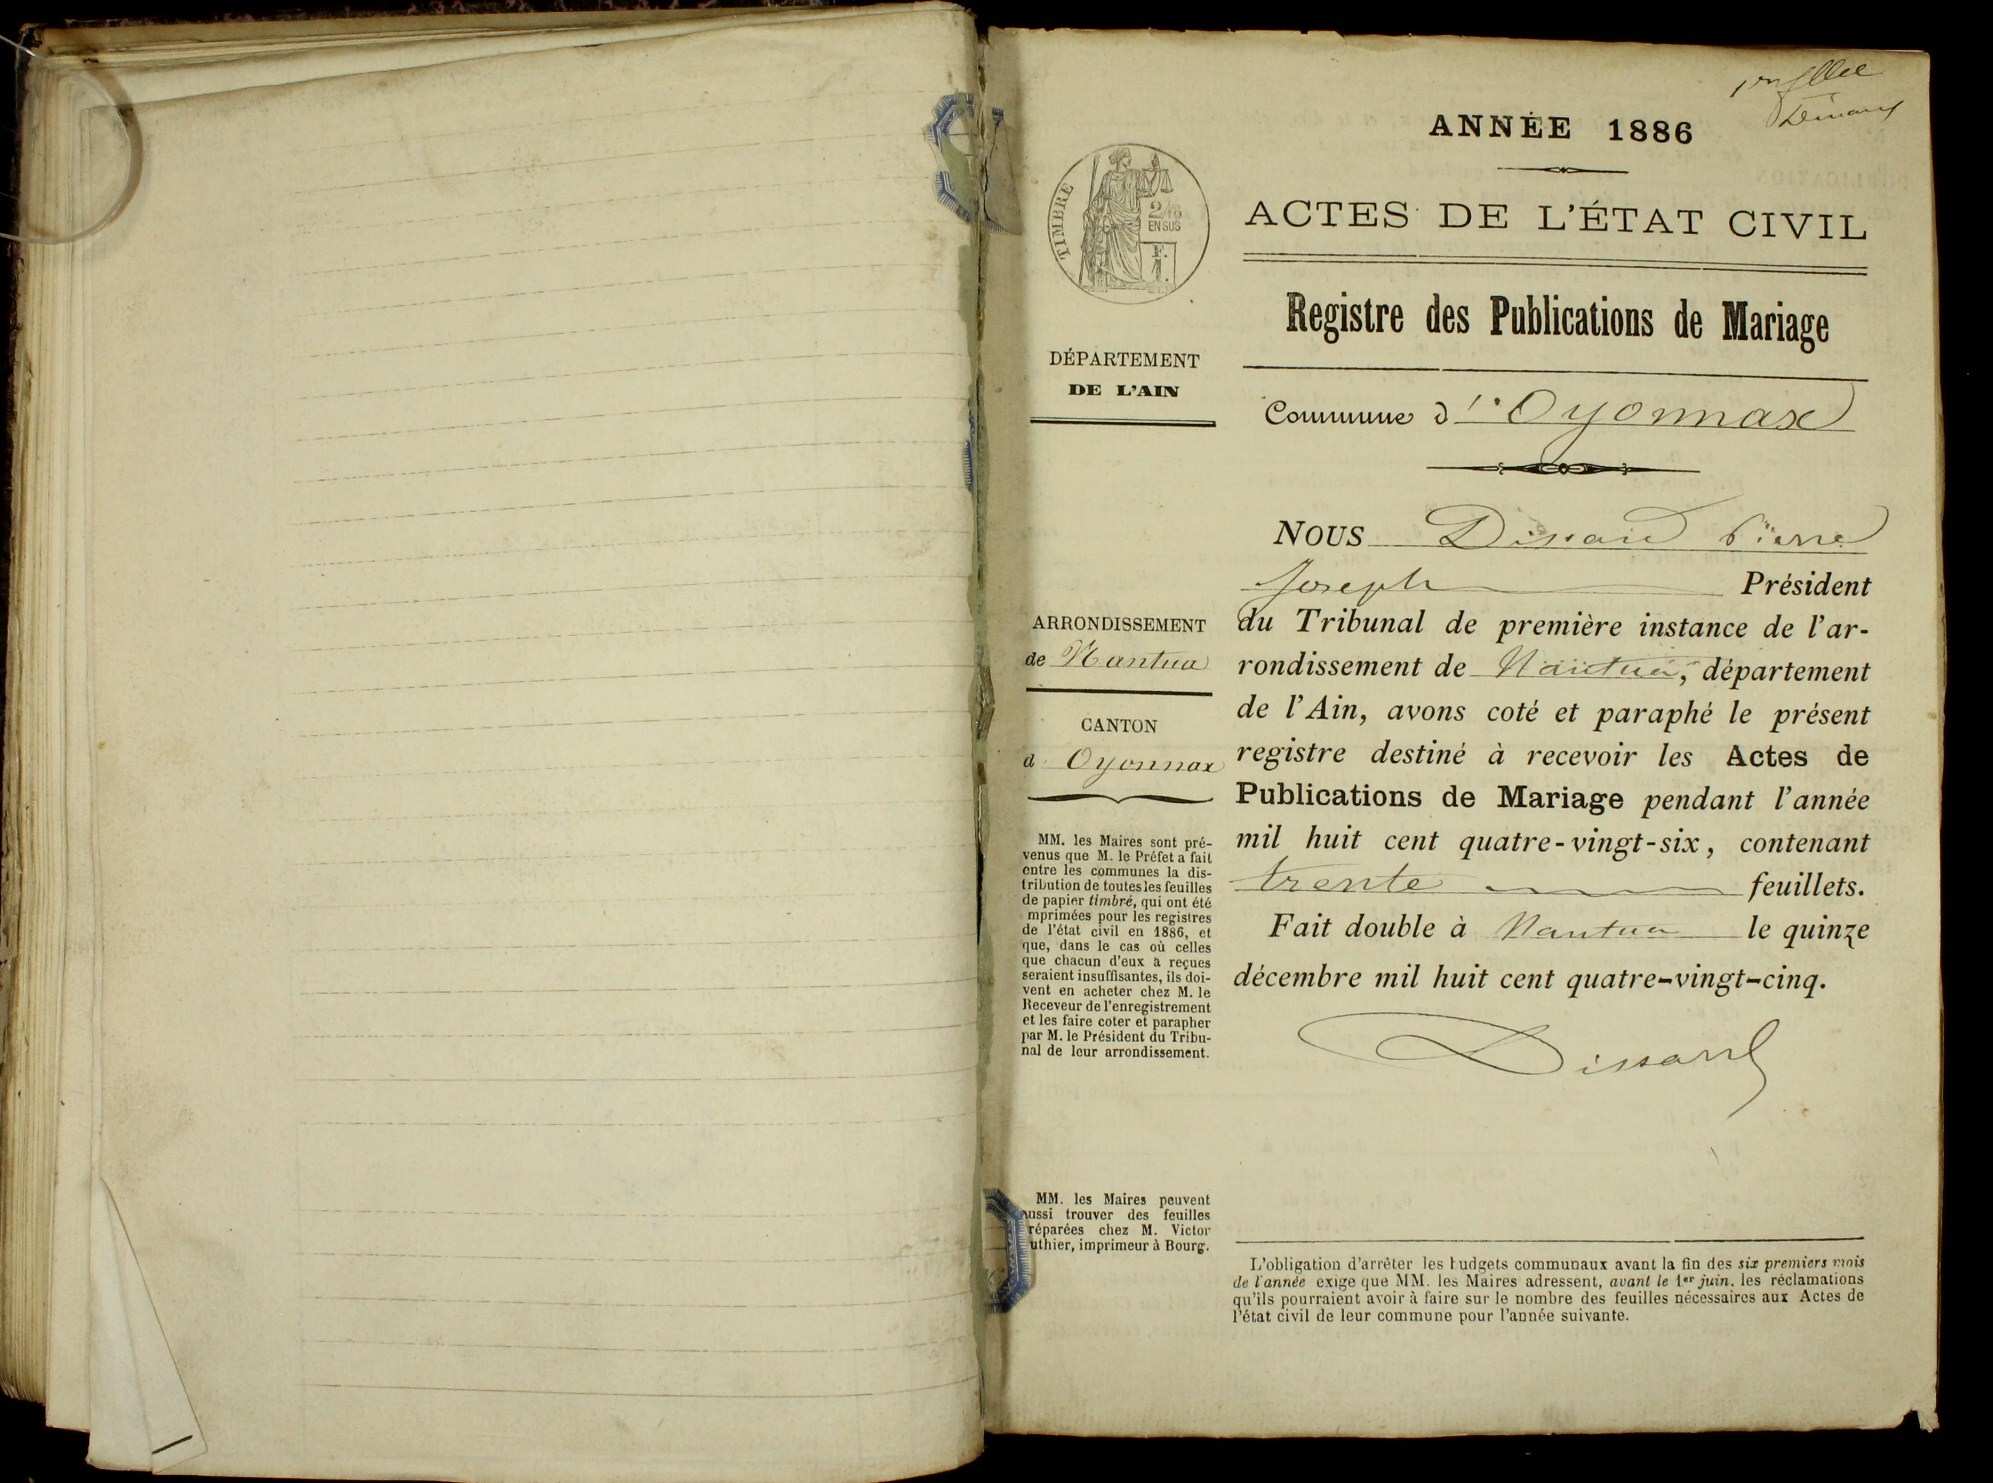 ANNÉE 1886
ACTES DE L'ÉTAT CIVIL
Registre des Publications de Mariage
Commune d'Oyonnax
TIMBRE
2/10
EN SUS
F.
1.
DÉPARTEMENT
DE L'AIN
ARRONDISSEMENT
de Nantua
CANTON
d Oyonnax
MM. les Maires sont pré-
venus que M. le Préfet a fait
entre les communes la dis-
tribution de toutes les feuilles
de papier timbré, qui ont été
mprimées pour les registres
de l'état civil en 1886, et
que, dans le cas où celles
que chacun d'eux a reçues
seraient insuffisantes, ils doi-
vent en acheter chez M. le
Receveur de l'enregistrement
et les faire coter et parapher
par M. le Président du Tribu-
nal de leur arrondissement.
MM. les Maires peuvent
ussi trouver des feuilles
réparées chez M. Victor
uthier, imprimeur à Bourg.
NOUS Dissard Pierre
Joseph Président
du Tribunal de première instance de l'ar-
rondissement de Nantua, département
de l'Ain, avons coté et paraphé le présent
registre destiné à recevoir les Actes de
Publications de Mariage pendant l'année
mil huit cent quatre-vingt-six, contenant
trente feuillets.
Fait double à Nantua le quinze
décembre mil huit cent quatre-vingt-cinq.
Dissard
L'obligation d'arrêter les budgets communaux avant la fin des six premiers mois
de l'année exige que MM. les Maires adressent, avant le 1er juin, les réclamations
qu'ils pourraient avoir à faire sur le nombre des feuilles nécessaires aux Actes de
l'état civil de leur commune pour l'année suivante.